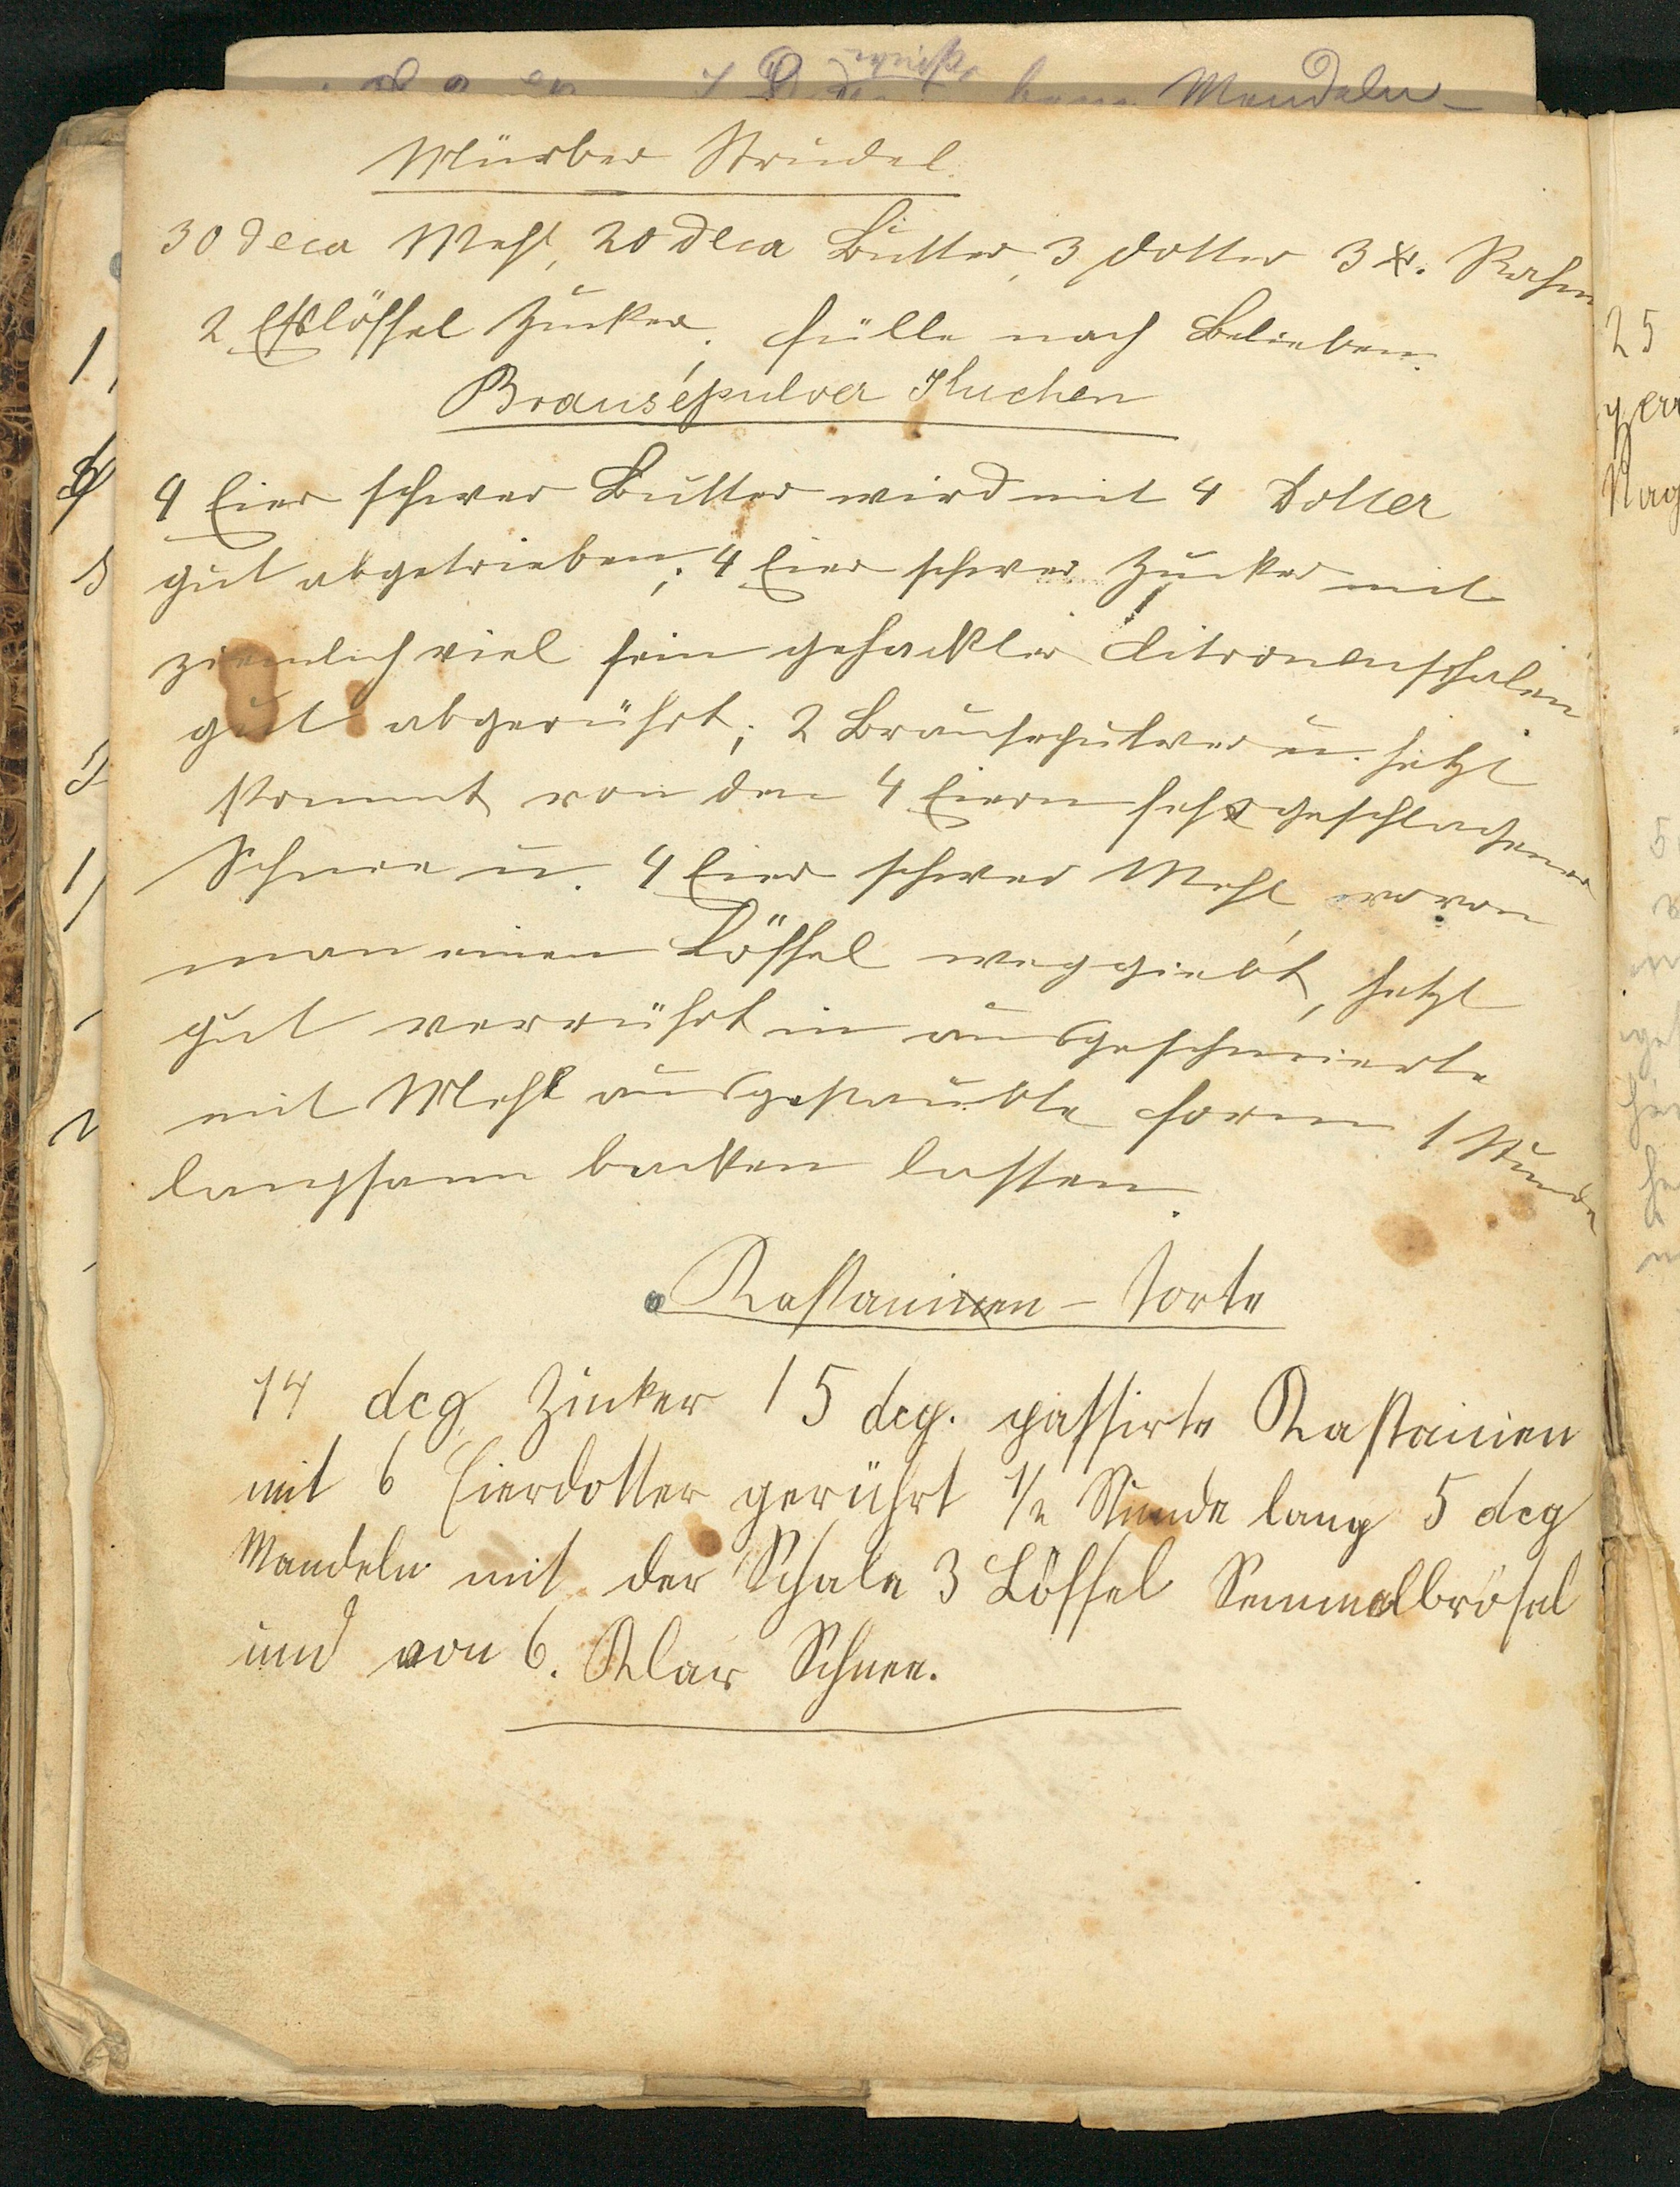 Mandeln
Mürber Strudel.
30 deca Mehl, 20 deca Butter, 3 Dotter 3 xr. Rahm
2 Eßlöffel Zucker. Fülle nach Belieben.
Brausepulver Kuchen
4 Eier schwer Butter wird mit 4 Dotter
gut abgetrieben; 4 Eier schwer Zucker mit
ziemlich viel fein gehackter Citronenschalen
gut abgerührt; 2 Brausepulver u. jetzt
kommt von den 4 Eiern festgeschlagener
Schnee u. 4 Eier schwer Mehl wovon
man einen Löffel weggiebt, jetzt
gut verrührt in ausgeschmierte
mit Mehl ausgestaubte Form 1 Stunde
langsam backen lassen.
Kastanien-Torte
14 dcg Zucker 15 dcg. passirte Kastanien
mit 6 Eierdotter gerührt 1/2 Stunde lang 5 dcg
Mandeln mit der Schale 3 Löffel Semmelbrösel
und von 6. Klar Schnee.
25